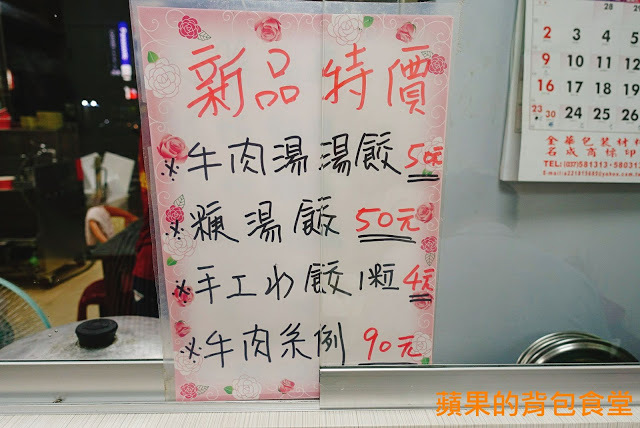 新品特價
※牛肉湯湯餃50元
※粳湯餃 50元
※手工水餃1粒4元
※牛肉条例 90元
28 29
2 3 4 5
9 10 11 12
16 17 18 19
23/30 24 25 26
金華包裝材料
石成商標印
TEL:(037)581313‧580313
蘋果的背包食堂